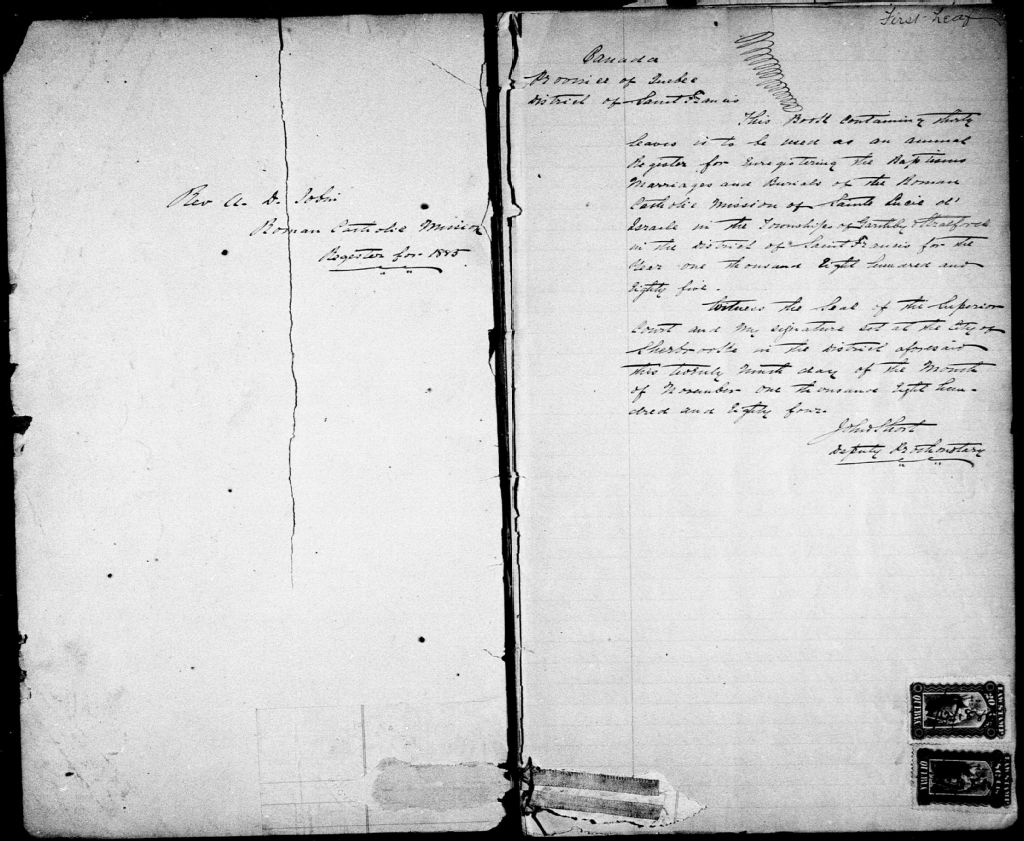 Rev A. D. Tobin
Roman Catholic Mission
Register for 1885
First Leaf
Canada
Province of Quebec
District of Saint Francis
This Book Containing thirty
leaves is to be used as an annual
Register for Enregistering the Baptisms
Marriages and Burials of the Roman
Catholic Mission of Sainte Lucie d'
Israeli in the Townships of Garthby & Stratford
in the District of Saint Francis for the
Year one thousand Eight hundred and
Eighty five.
Witness the Seal of the Superior
Court and my signature set at the City of
Sherbrooke in the District aforesaid
this twenty Ninth day of the Month
of November one thousand Eight hun-
dred and Eighty four.
John Short
Deputy Prothonotary
LAW STAMP
QUEBEC
LAW STAMP
QUEBEC